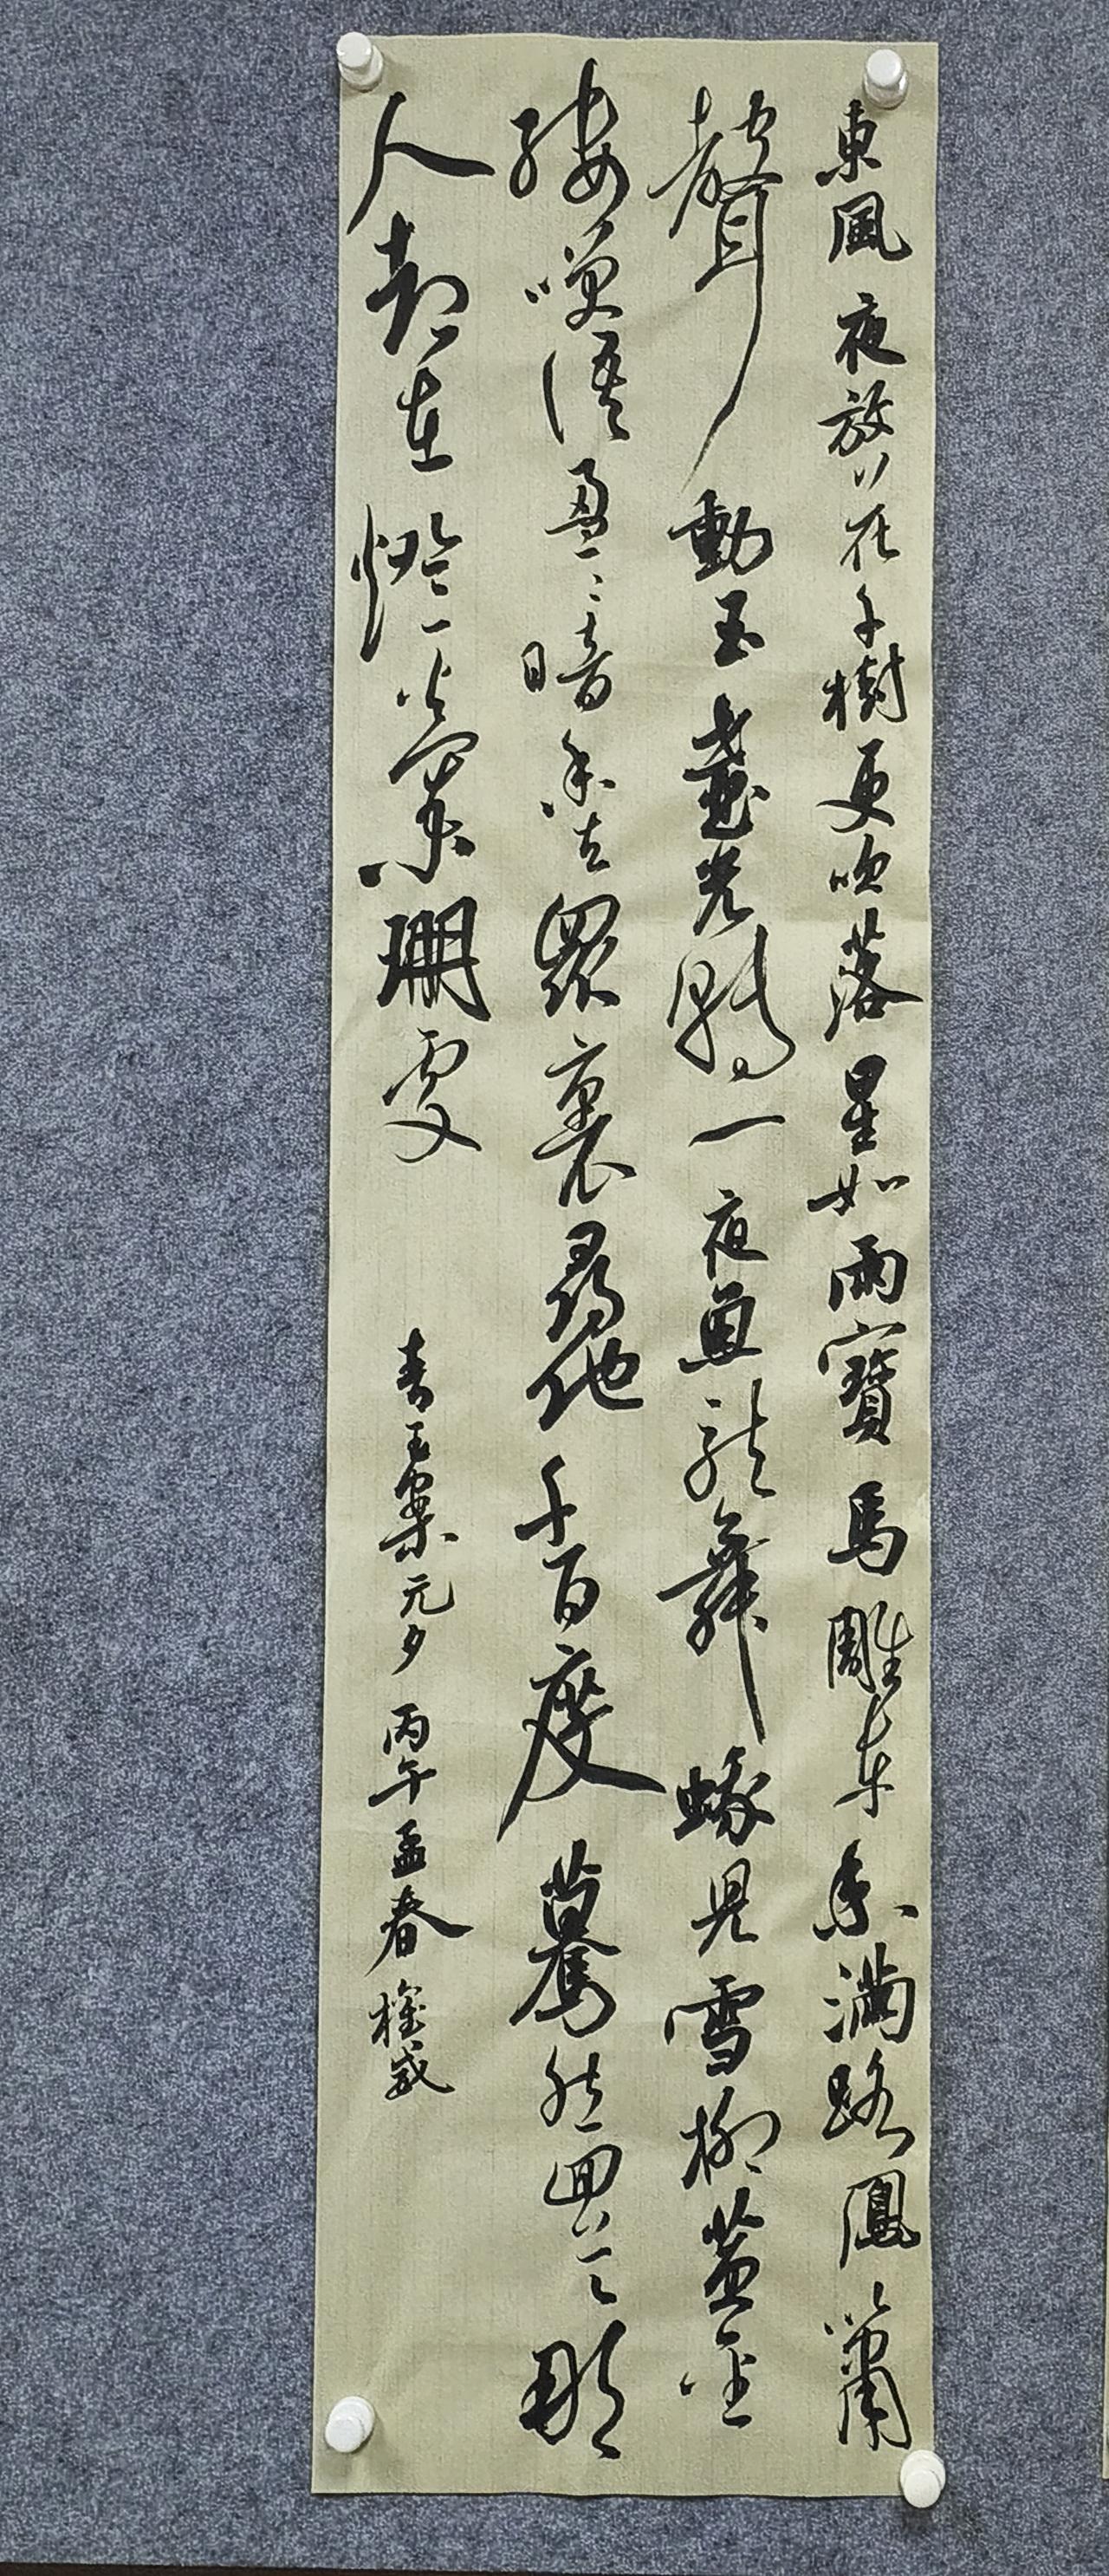 東風夜放花千樹更吹落星如雨寶馬雕車香滿路鳳簫
聲動玉壺光轉一夜魚龍舞蛾兒雪柳黃金
縷咲語盈〻暗香去眾裏尋他千百度驀然回首那
人却在燈火闌珊處 青玉案元夕 丙午孟春